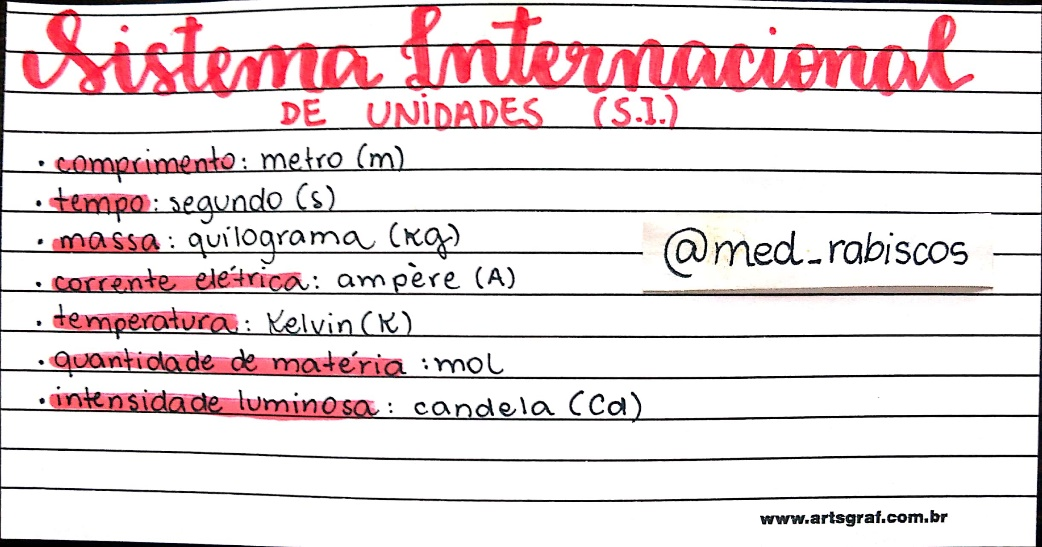 Sistema Internacional
DE UNIDADES (S.I.)
· comprimento: metro (m)
· tempo: segundo (s)
· massa: quilograma (kg)
· corrente elétrica: ampère (A)
· temperatura: Kelvin (K)
· quantidade de matéria: mol
· intensidade luminosa: candela (Cd)
@med_rabiscos
www.artsgraf.com.br